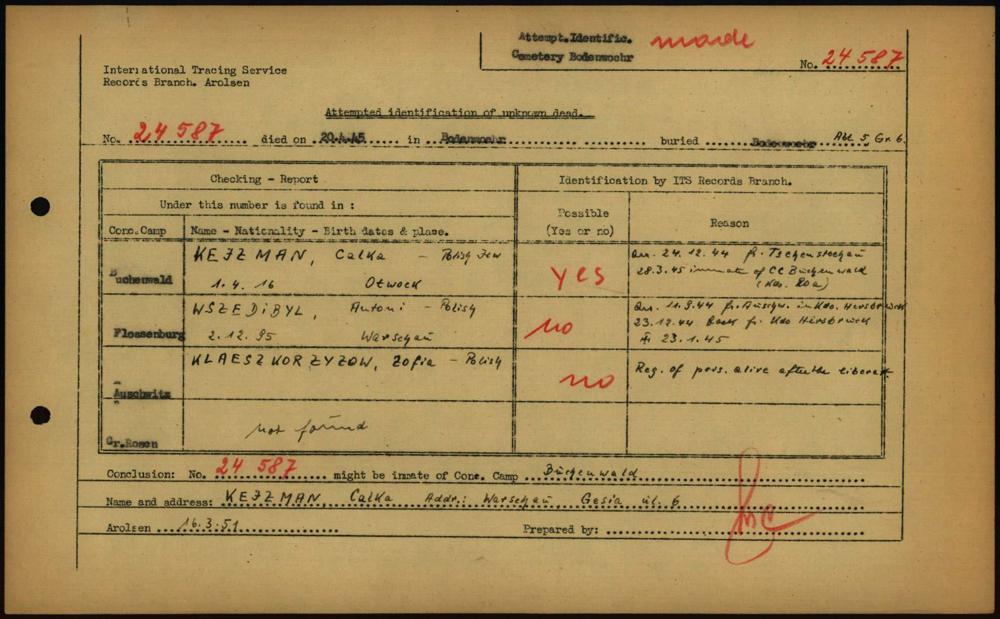 Attempt.Identific. made
Cemetery Bodenwoehr
No. 24 587
International Tracing Service
Records Branch. Arolsen
Attempted identification of unknown dead.
No. 24 587 died on 20.4.45 in Bodenwoehr buried Bodenwoehr Abt 5, Gr. 6
Checking - Report
Identification by ITS Records Branch.
Under this number is found in :
Possible
(Yes or no)
Reason
Conc.Camp
Name - Nationality - Birth dates & place.
Buchenwald
KEJZMAN, Calka - Polish Jew
1. 4. 16 Otwock
yes
Arr. 24. 12. 44 fr. Tschenstochau
28.3.45 inmate of CC Buchenwald
(Kdo.
Flossenburg
WSZEDIBYL, Antoni - Polish
2. 12. 95 Warschau
no
Arr. 11.9.44 fr. Auschw. in Kdo. Hersbruck
23.12.44 back fr. Kdo Hersbruck
23.1.45
Auschwitz
KLAESZKORZYZOW, Zofia - Polish
no
Reg. of pers. alive after the liberat.
Gr.Rosen
not found
Conclusion: No. 24 587 might be inmate of Conc. Camp Buchenwald
Name and address: KEJZMAN, Calka Addr.: Warschau, Gesia ul. 6
Arolsen 16.3.51 Prepared by: